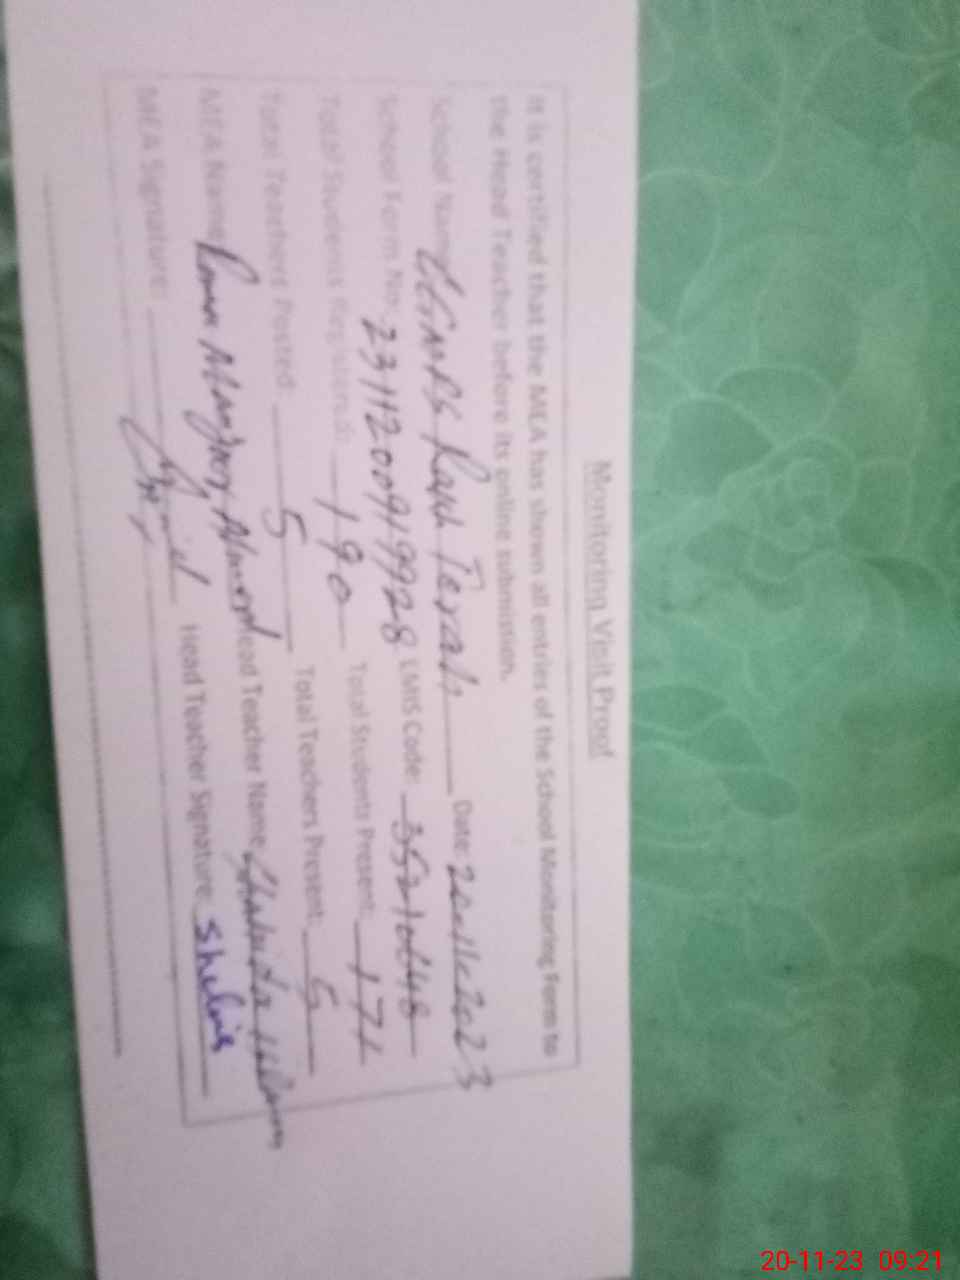 Monitoring Visit Proof
It is certified that the MEA has shown all entries of the School Monitoring Form to
the Head Teacher before its online submission.
School Name Date: 20-11-2023
School Form No: LMIS Code: 35210648
Total Students Registered: 190 Total Students Present: 171
Total Teachers Posted: 5 Total Teachers Present: 5
MEA Name Head Teacher Name
MEA Signature: Head Teacher Signature:
20-11-23 09:21